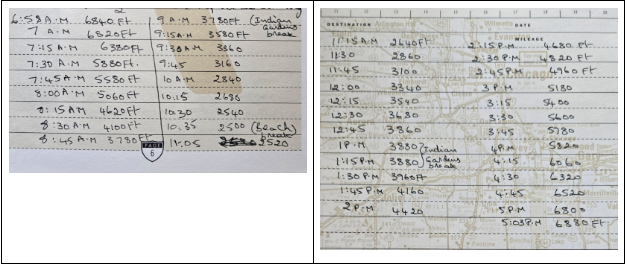 6:58 A.M 6840 FT
7 A.M 6820 FT
7:15 A.M 6380 FT
7:30 A.M 5880 FT.
7:45 A.M 5580 FT
8:00 A.M 5060 FT
8:15 A.M 4620 FT
8:30 A.M 4100 FT
8:45 A.M 3780 FT
9 A.M 3780 FT (Indian Gardens break
9:15 A.M 3580 FT
9:30 A.M 3360
9:45 3160
10 A.M 2840
10:15 2680
10:30 2540
10:35 2500 (Beach) break
11:05 2520
PAGE 6
DESTINATION
DATE
MILEAGE
11:15 A.M 2640 FT
11:30 2860
11:45 3100
12:00 3340
12:15 3540
12:30 3680
12:45 3860
1 P.M 3880 (Indian
1:15 P.M 3880 Gardens break
1:30 P.M 3960 FT
1:45 P.M 4160
2 P.M 4420
2:15 P.M 4680 FT
2:30 P.M 4820 FT
2:45 P.M 4960 FT
3 P.M 5180
3:15 5400
3:30 5600
3:45 5780
4 P.M 5820
4:15 6060
4:30 6320
4:45 6520
5 P.M 6800
5:03 P.M 6880 FT